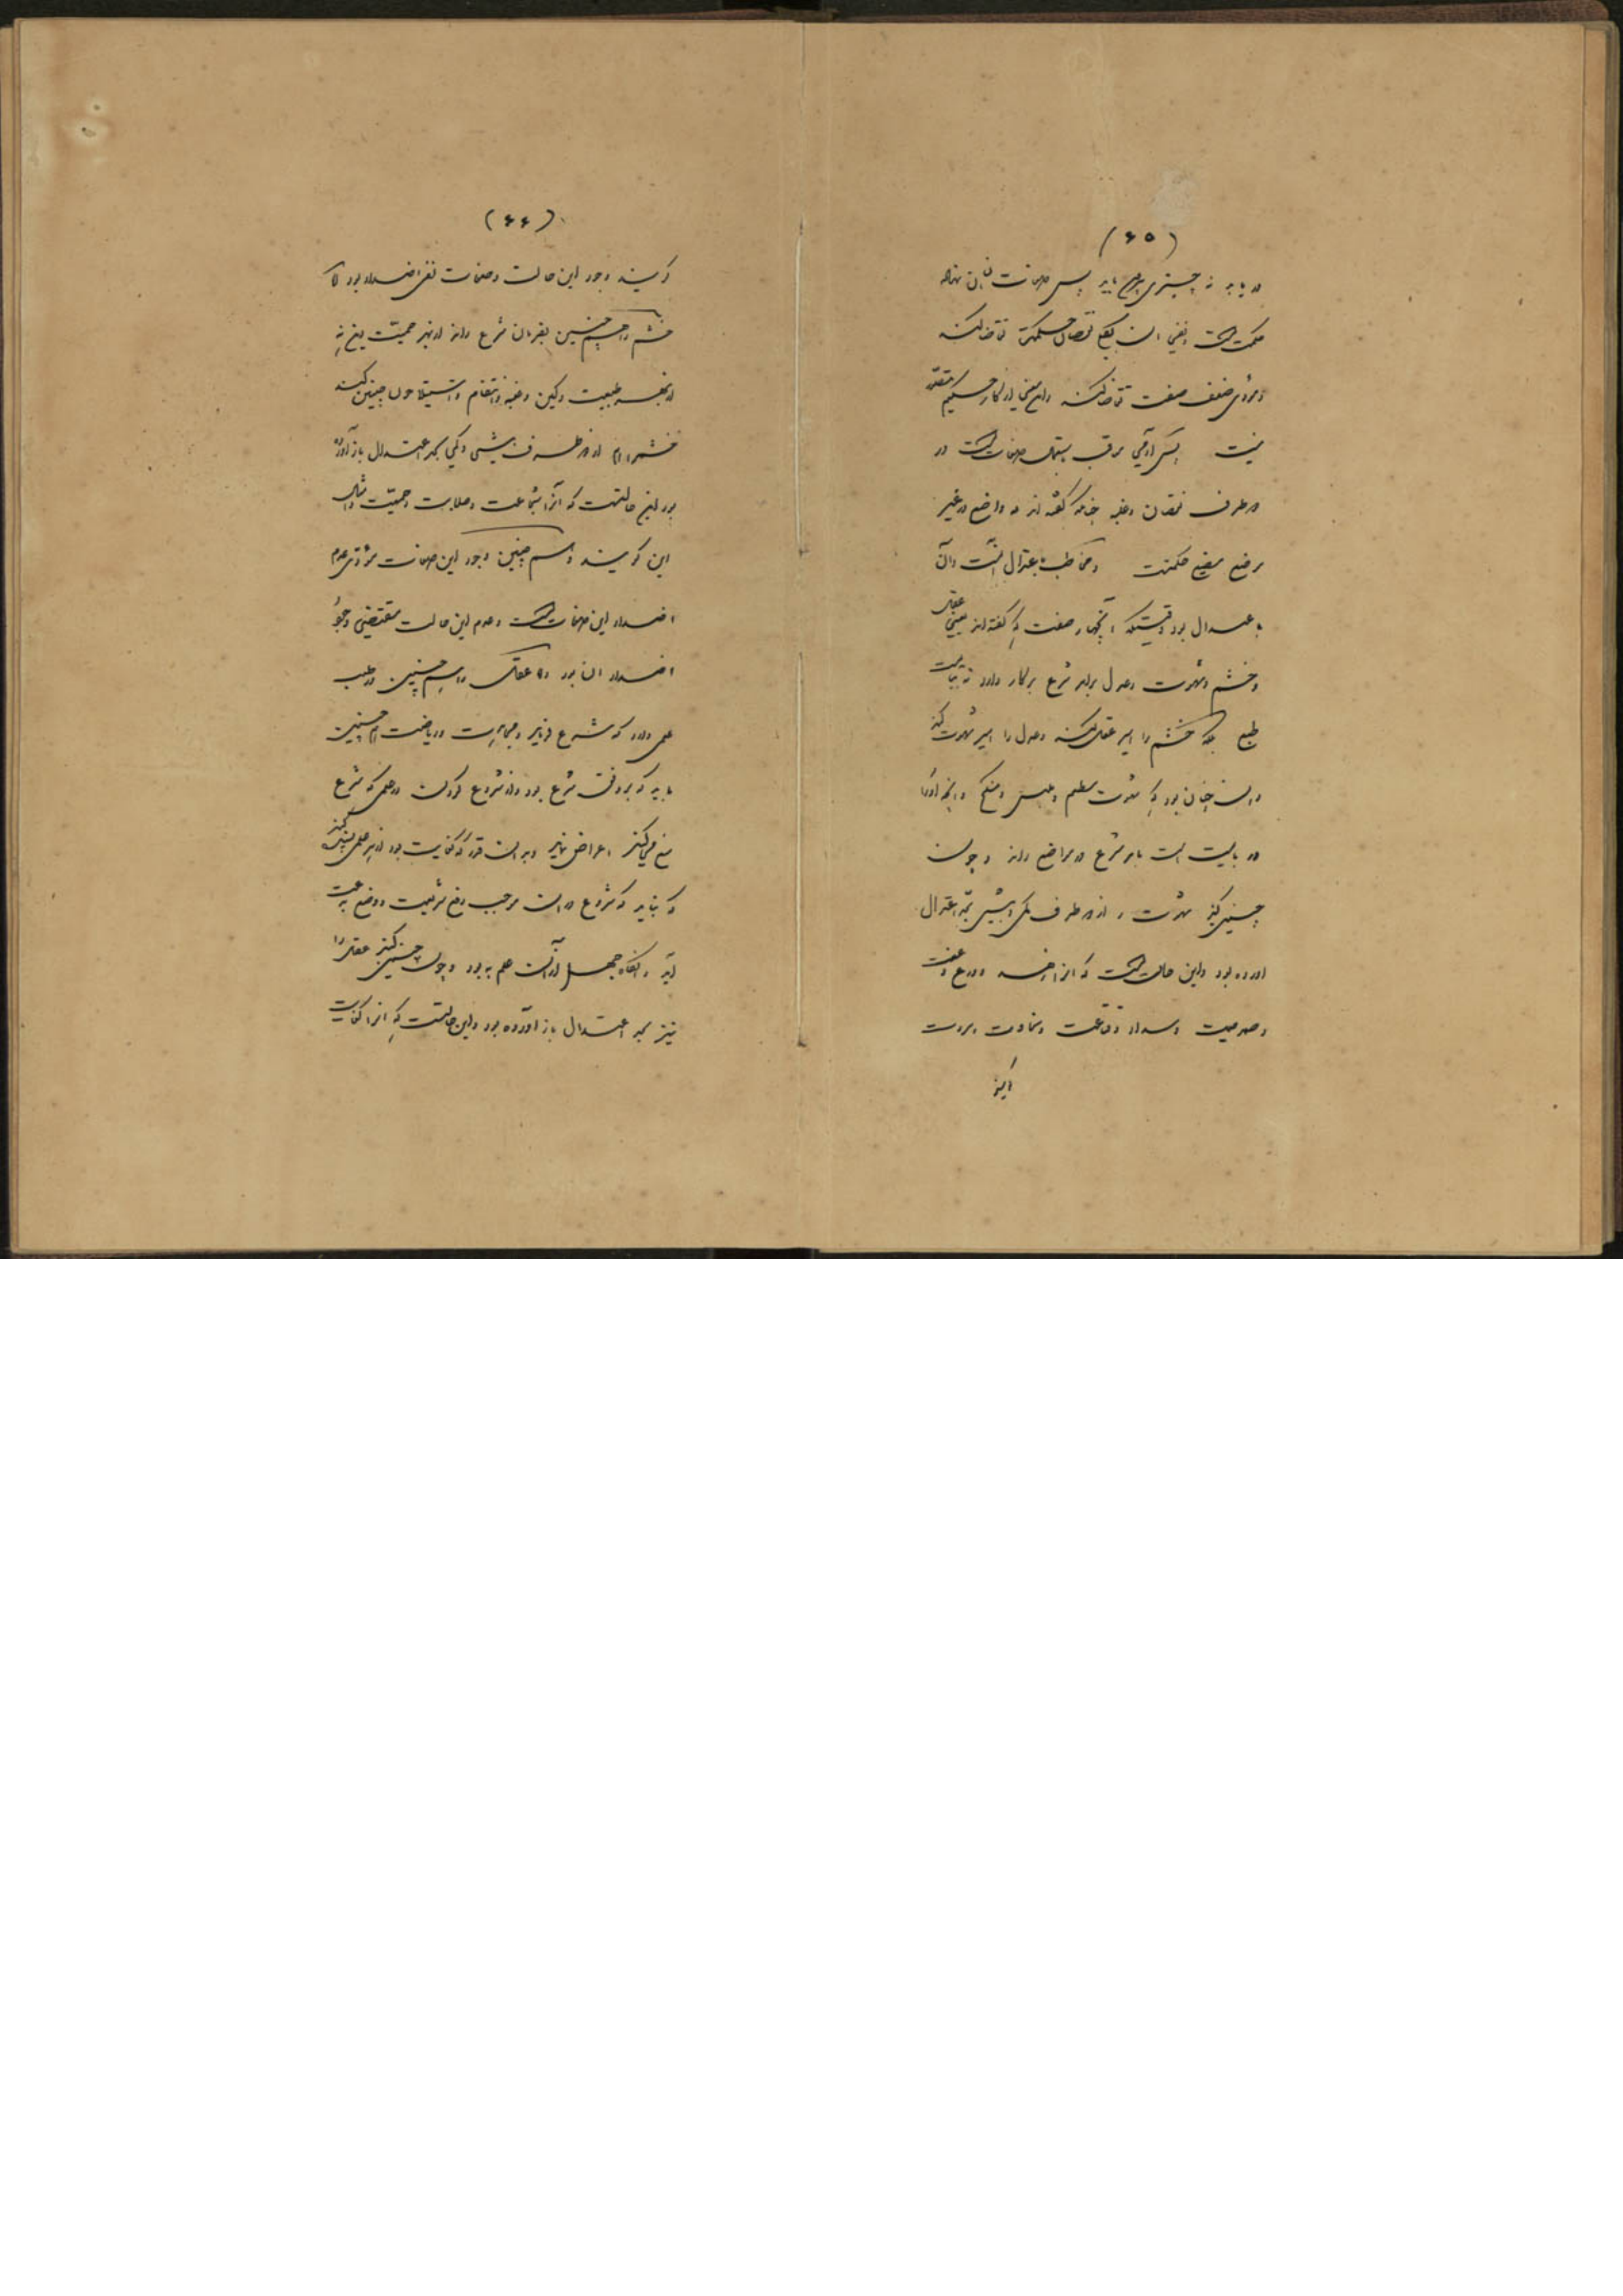 (٦٥)
در یابد نه چیزی پس صفات
حکمتست و نفی آن بکلی تقاضا کند
و مؤدی ضعف صفت تقاضا کند و این معنی از کار حکیم متقن
نیست پس آدمی مرقب صفاتست در
دو طرف نقصان و غلبه چنانکه گفته اند که واضع در غیر
موضع مضیع حکمتست و مخاطب باعتدال است و آن
باعتدال بود وقتیکه آنچهار صفت که گفته اند یعنی عقل
و خشم و شهوت و عدل برابر شرع برکار دارد نه بتبعیت
طبع بلکه خشم را اسیر عقل کند و عدل را اسیر شهوت کند
و این چنان بود که شهوت مطعم و ملبس و منکح و آنچه او را
در بایست است بامر شرع در مواضع راند و چون
چنین کند شهوت را از دو طرف کمی و بیشی بحد اعتدال
آورده بود و این حالتست که آنرا زهد و ورع و عفت
و صدیقیت و سداد و قناعت و سخاوت و مروت
گویند
(٦٦)
گویند وجود این حالت و صفات نفی اضداد بود و
خشم را همچنین بفرمان شرع راند از بهر حمیت دین نه
از بهر طبیعت و کین و غلبه و انتقام و استیلا چون چنین کند
خشم را هم از دو طرف بیشی و کمی بحد اعتدال باز آورده
بود این حالتست که آنرا شجاعت و صلابت و حمیت و امثال
این گویند و همچنین وجود این صفات مؤدی عدم
اضداد این صفاتست و عدم این حالت مقتضی وجود
اضداد آن بود و عقل را همچنین در طلب
علمی دارد که شرع فرماید و مجاهدت و ریاضت همچنین
باید که بر وفق شرع بود و از شروع کردن در علمی که شرع
منع میکند اعراض نماید و بدان قدر که کفایت بود از هر علمی بسند کند
که نباید که شروع در آن موجب رفع شریعت و وضع بدعت
آید و آنگاه جهل از آن علم به بود و چون چنین کند عقل را
نیز بحد اعتدال باز آورده بود و این حالتست که آنرا کفایت